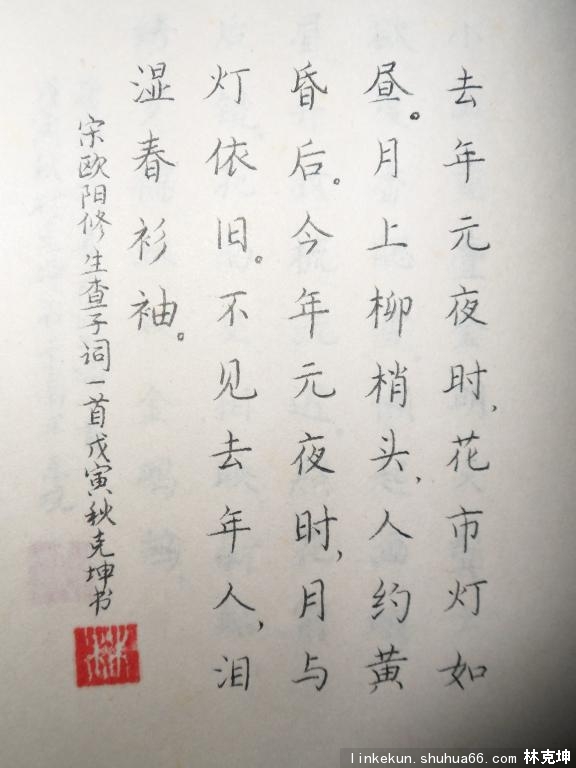 去年元夜时,花市灯如
昼。月上柳梢头,人约黄
昏后。今年元夜时,月与
灯依旧。不见去年人,泪
湿春衫袖。
宋欧阳修生查子词一首戊寅秋克坤书
林
linkekun.shuhua66.com 林克坤